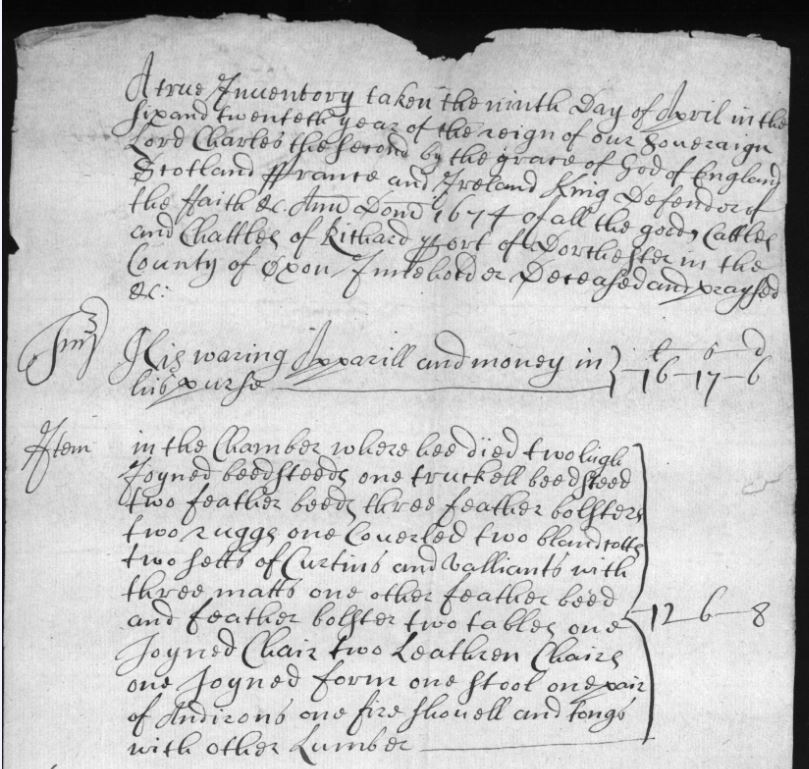 A true Inventory taken the ninth Day of April in the
sixand twenteth year of the reign of our Soueraign
Lord Charles the second by the grace of God of England
Scotland ffrance and Ireland King Defendor of
the ffaith &c Ann̄ Dom̄ 1674 of all the goods Cattles
and Chattles of Richard port of Dorchester in the
County of Oxon Deceased and praysed
&c:
Imp His waring Apparill and money in } £ s d
his purse 16-17-6
Item in the Chamber where hee died two high
Joyned beedsteeds one truckell beedsteed
two feather beeds three feather bolsters
two ruggs one Couerled two blandcotts
two setts of Curtins and valliants with
three matts one other feather beed
and feather bolster two tables one 12-6-8
Joyned Chair two Leathren Chairs
one Joyned form one stool one pair
of Andirons one fire shouell and tongs
with other Lumber